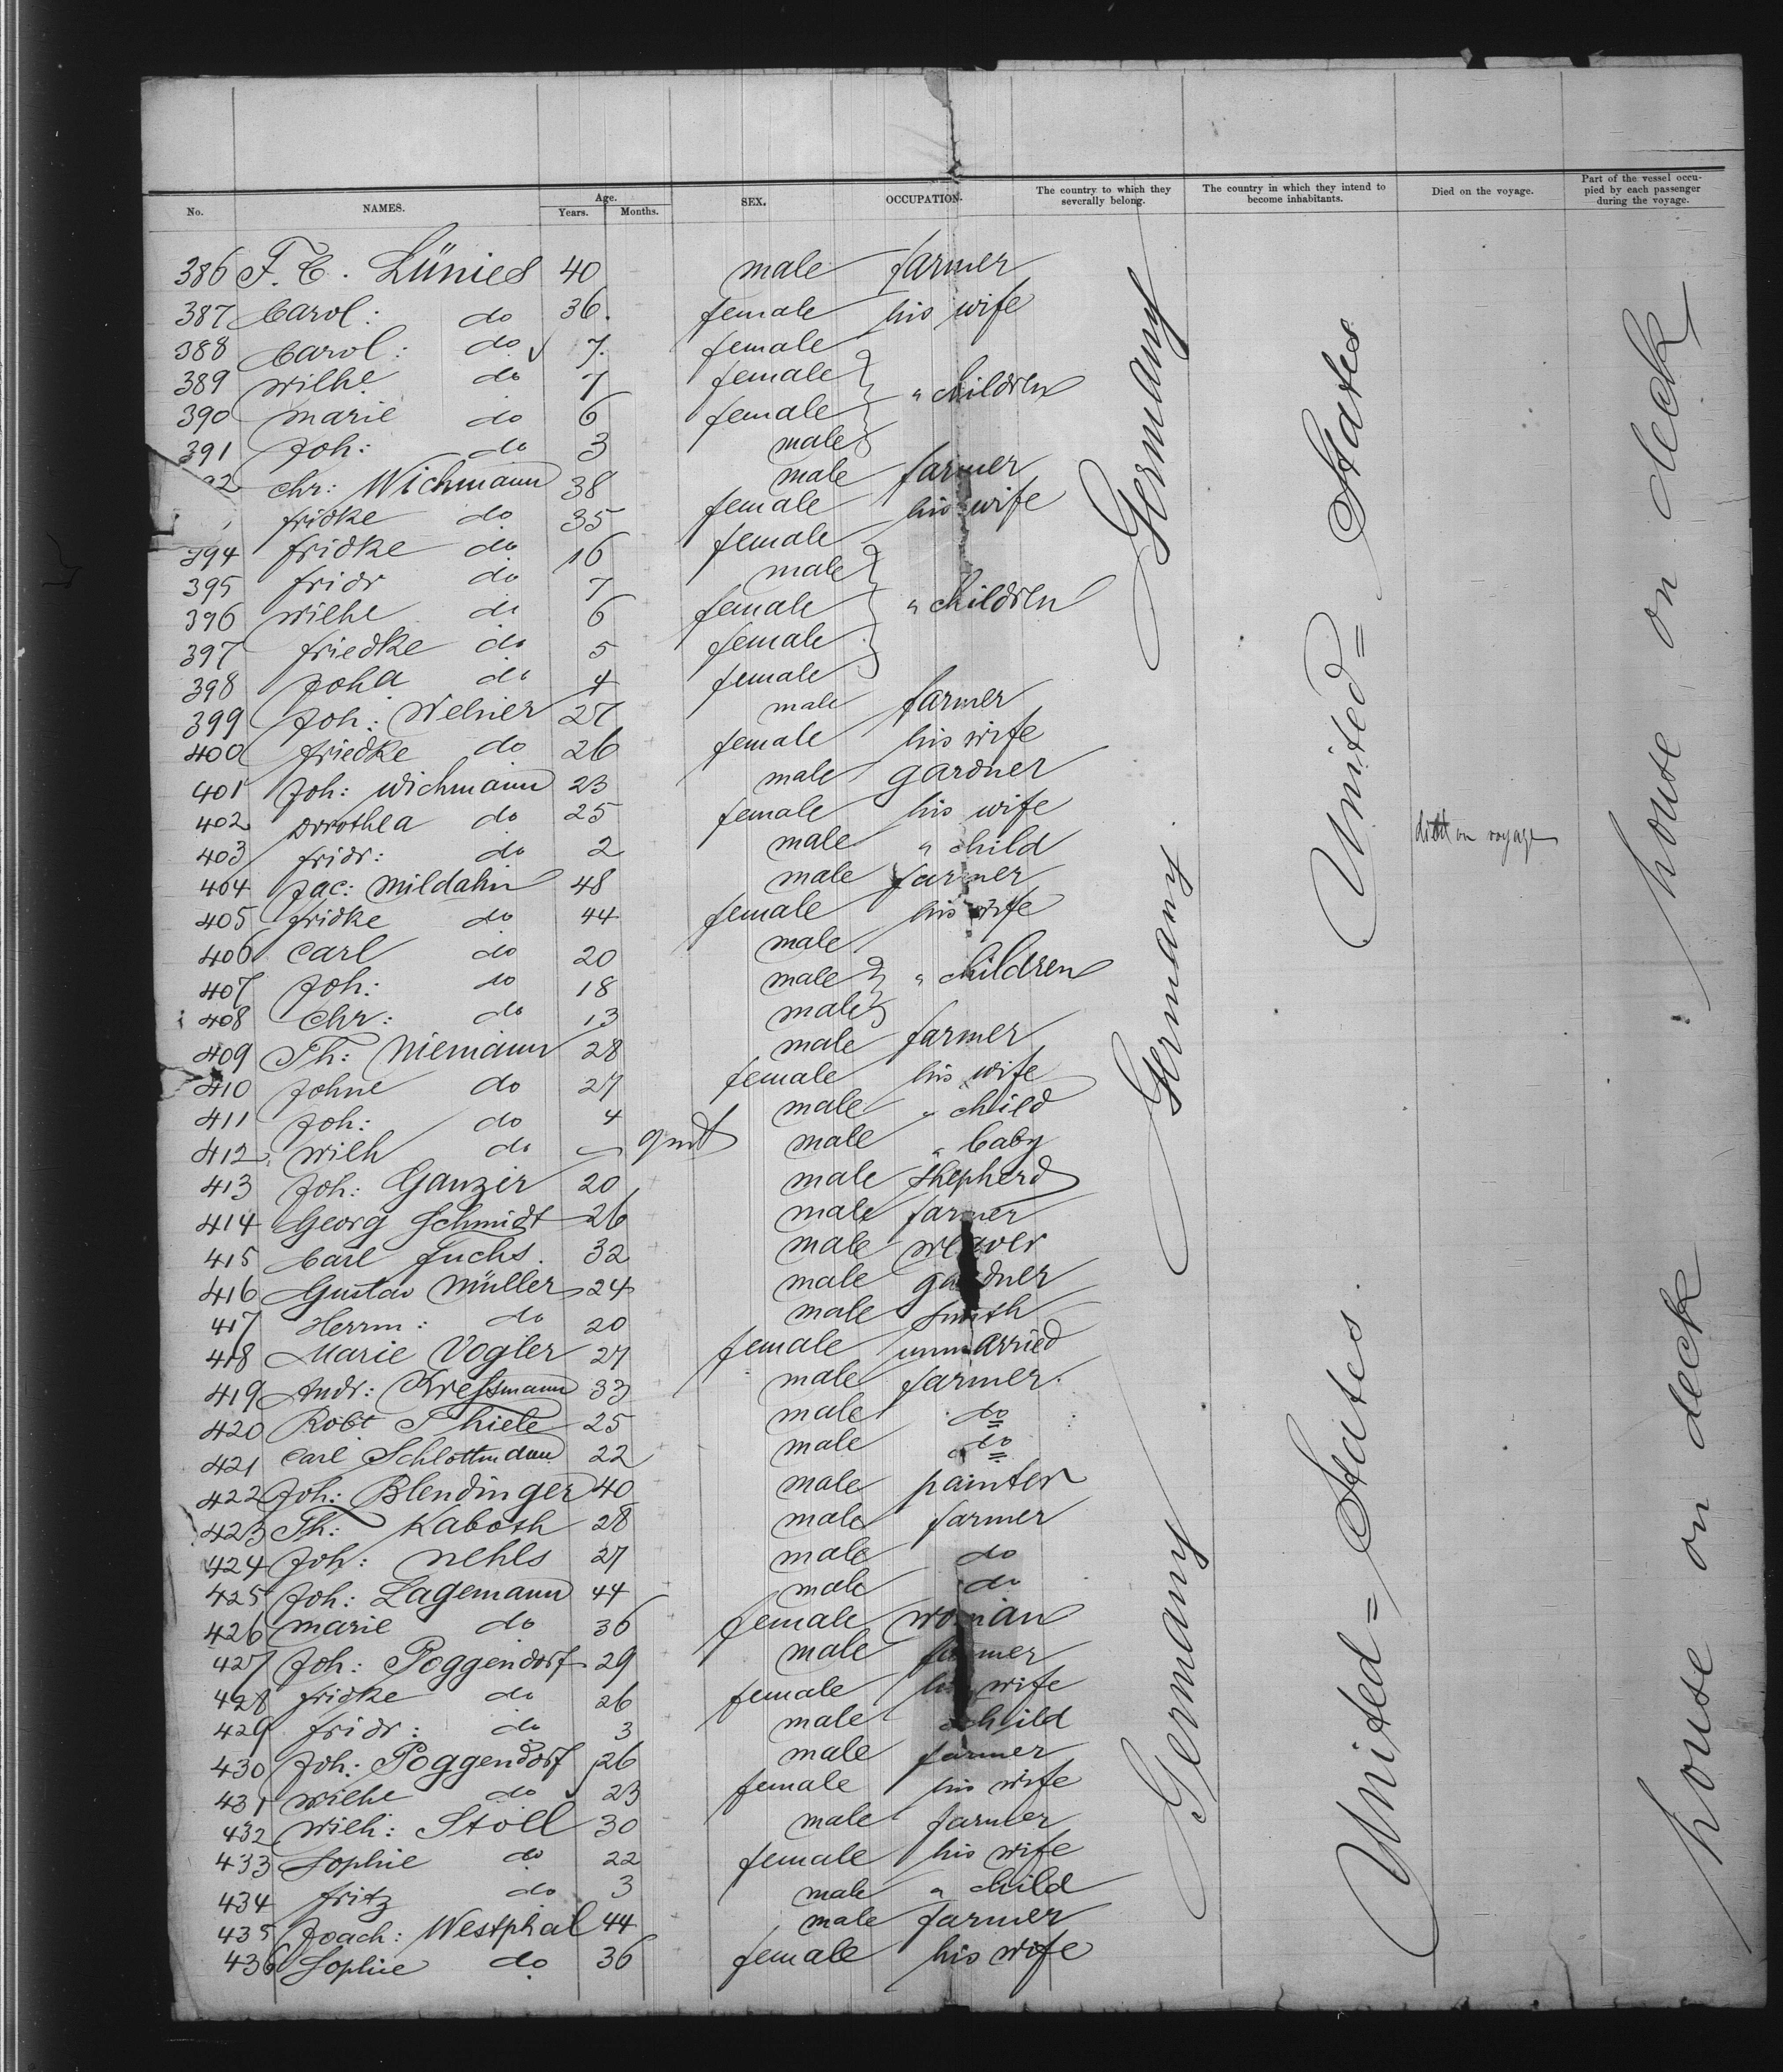 No. NAMES. Age. Years. Months. SEX. OCCUPATION. The country to which they severally belong. The country in which they intend to become inhabitants. Died on the voyage. Part of the vessel occupied by each passenger during the voyage.
386 F. C. Lünies 40 male farmer
387 Carol: do 36. female his wife
388 Carol: do 7. female
389 Wilhe do 7 female
390 Marie do 6 female " children
391 Joh: do 3 male
92 Chr: Wichmann 38 male farmer
fridke do 35 female his wife
394 fridke do 16 female
395 fridr do 7 male
396 Wilhe do 6 female " children
397 friedke do 5 female
398 Joha do 4 female
399 Joh: Welner 27 male farmer
400 friedke do 26 female his wife
401 Joh: Wichmann 23 male gardner
402 Dorothea do 25 female his wife
403 fridr: do 2 male " child died on voyage
404 Jac: Mildahn 48 male farmer
405 fridke do 44 female his wife
406 Carl do 20 male
407 Joh: do 18 male " children
408 Chr: do 13 male
409 Th: Niemann 28 male farmer
410 Johne do 27 female his wife
411 Joh: do 4 male " child
412 Wilh do 9 mt male " baby
413 Joh: Ganzer 20 male Shepherd
414 Georg Schmidt 26 male farmer
415 Carl Fuchs. 32 male weaver
416 Gustav Müller 24 male gardner
417 Herrm: do 20 male Smith
418 Marie Vogler 27 female unmarried
419 Andr: Kressmann 33 male farmer.
420 Robt Thiele 25 male do
421 Carl 22 male do
422 Joh: Blendinger 40 male painter
423 Th: Kaboth 28 male farmer
424 Joh: Nehls 27 male do
425 Joh: Lagemann 44 male do
426 Marie do 36 female woman
427 Joh: Poggendorf 29 male farmer
428 fridke do 26 female his wife
429 fridr: do 3 male child
430 Joh: Poggendorf 26 male farmer
431 Wilhe do 23 female his wife
432 Wilh: Stoll 30 male farmer
433 Sophie do 22 female his wife
434 fritz do 3 male " child
435 Joach: Westphal 44 male farmer
436 Sophie do 36 female his wife
Germany
Germany
Germany
United = States
United = States.
house on deck
house on deck